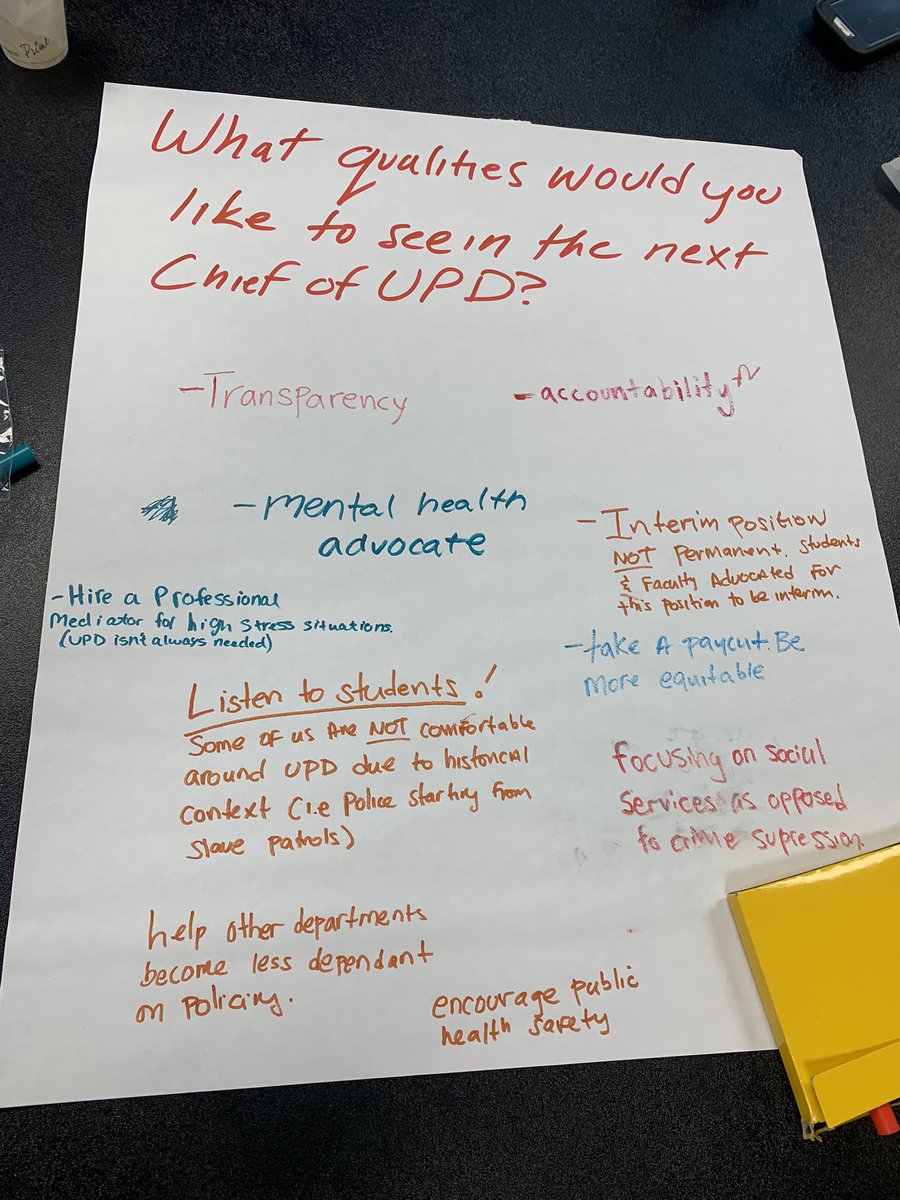 What qualities would you
like to see in the next
Chief of UPD?
-Transparency
-accountability
-mental health
advocate
-Interim position
NOT permanent. students
& Faculty Advocated for
this position to be interim.
-Hire a Professional
Mediator for high stress situations.
(UPD isn't always needed)
-take A paycut. Be
more equitable
Listen to students!
Some of us Are NOT comfortable
around UPD due to historical
context (i.e police starting from
slave patrols)
focusing on social
services as opposed
to crime supression.
help other departments
become less dependant
on policing.
encourage public
health safety